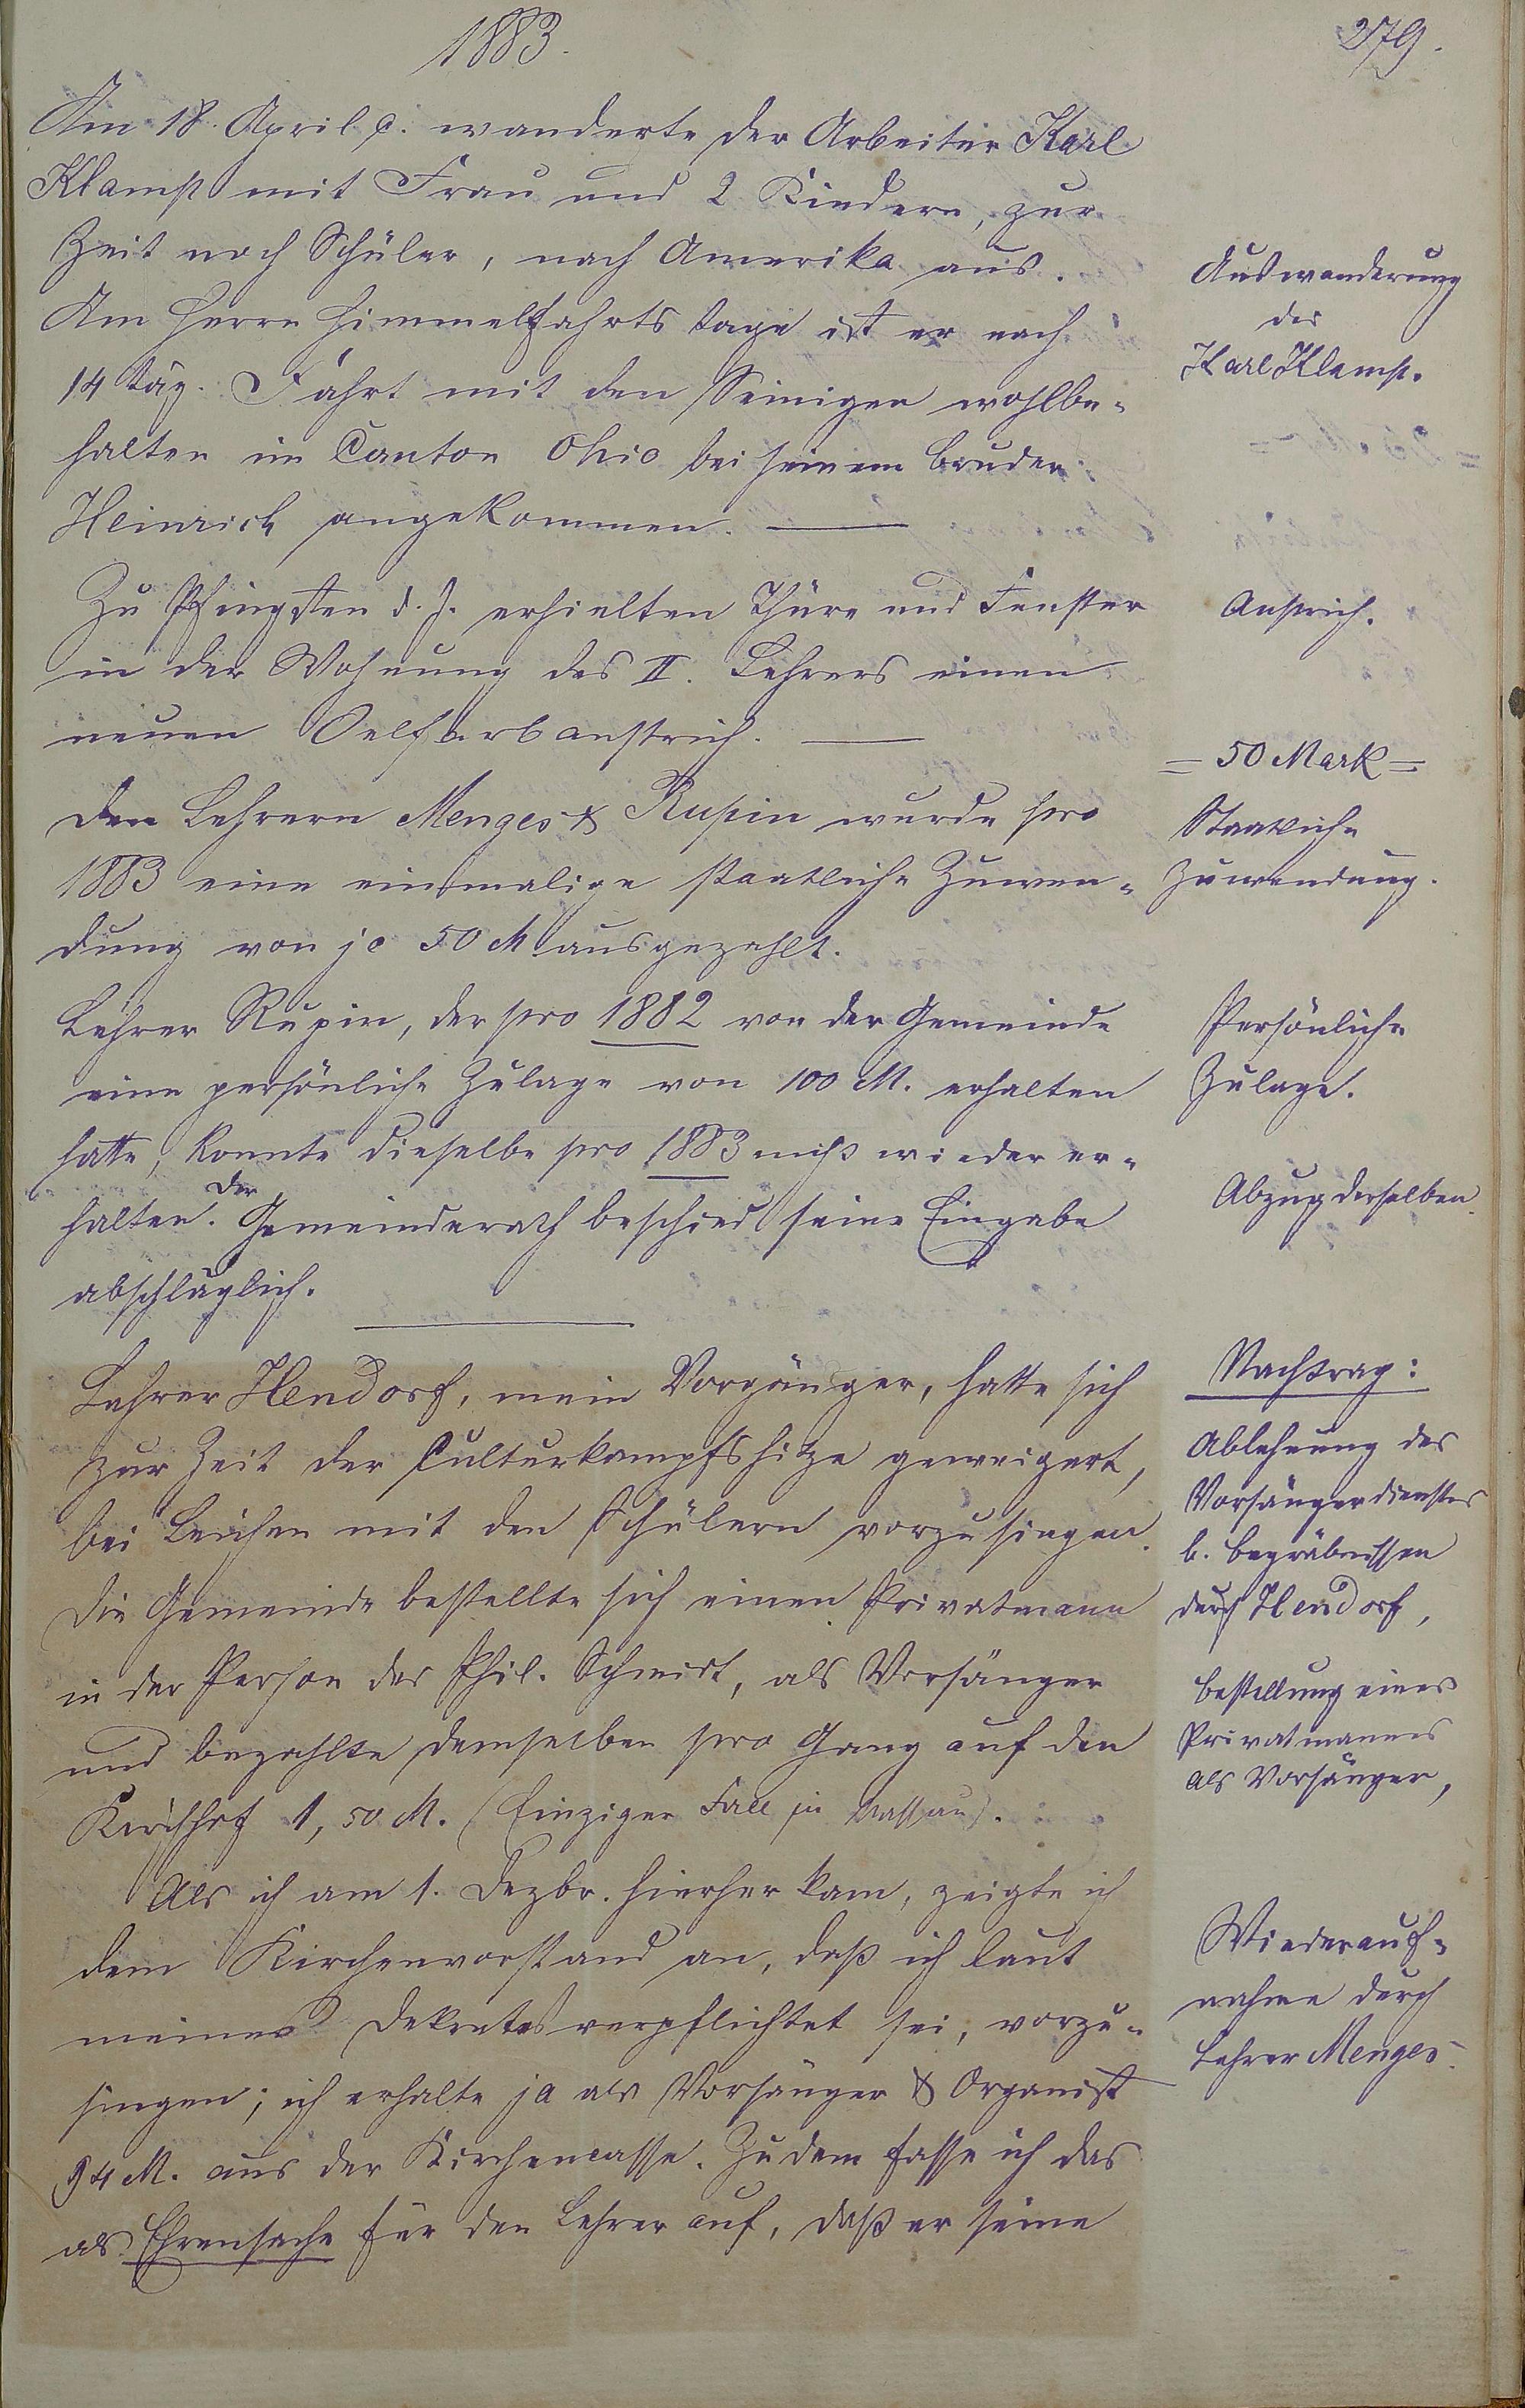 1883.
279.
Am 18. April c. wanderte der Arbeiter Karl
Klamp mit Frau und 2 Kindern, zur
Zeit noch Schüler, nach Amerika aus.
Am Herrn Himmelfahrtstage ist er nach
14 täg. Fahrt mit den Seinigen wohlbe-
halten in Canton Ohio bei seinem Bruder
Heinrich angekommen.
Auswanderung
des
Karl Klamp.
Zu Pfingsten d. J. erhielten Thüre und Fenster
in der Wohnung des II. Lehrers einen
neuen Oelfarbanstrich.
Anstrich.
Den Lehrern Menges & Rupin wurde pro
1883 eine einmalige staatliche Zuwen-
dung von je 50 M ausgezahlt.
= 50 Mark =
Staatliche
Zuwendung.
Lehrer Rupin, der pro 1882 von der Gemeinde
eine persönliche Zulage von 100 M. erhalten
hatte, konnte dieselbe pro 1883 nicht wieder er-
halten. Der Gemeinderath beschied seine Eingabe
abschläglich.
Persönliche
Zulage.
Abzug derselben.
Lehrer Hendorf, mein Vorgänger, hatte sich
zur Zeit der Culturkampfshitze geweigert,
bei Leichen mit den Schülern vorzusingen.
Die Gemeinde bestellte sich einen Privatmann
in der Person des Phil. Schmidt, als Vorsänger
und bezahlte demselben pro Gang auf den
Kirchhof 1,50 M. (Einziger Fall in Nassau).
Nachtrag:
Ablehnung des
Vorsängerdienstes
b. Begräbnissen
durch Hendorf,
Bestellung eines
Privatmannes
als Vorsänger,
Als ich am 1. Dezbr. hierher kam, zeigte ich
dem Kirchenvorstand an, daß ich laut
meines Dekretes verpflichtet sei, vorzu-
singen; ich erhalte ja als Vorsänger & Organist
94 M. aus der Kirchencasse. Zudem fasse ich das
als Ehrensache für den Lehrer auf, daß er seine
Wiederauf-
nahme durch
Lehrer Menges.